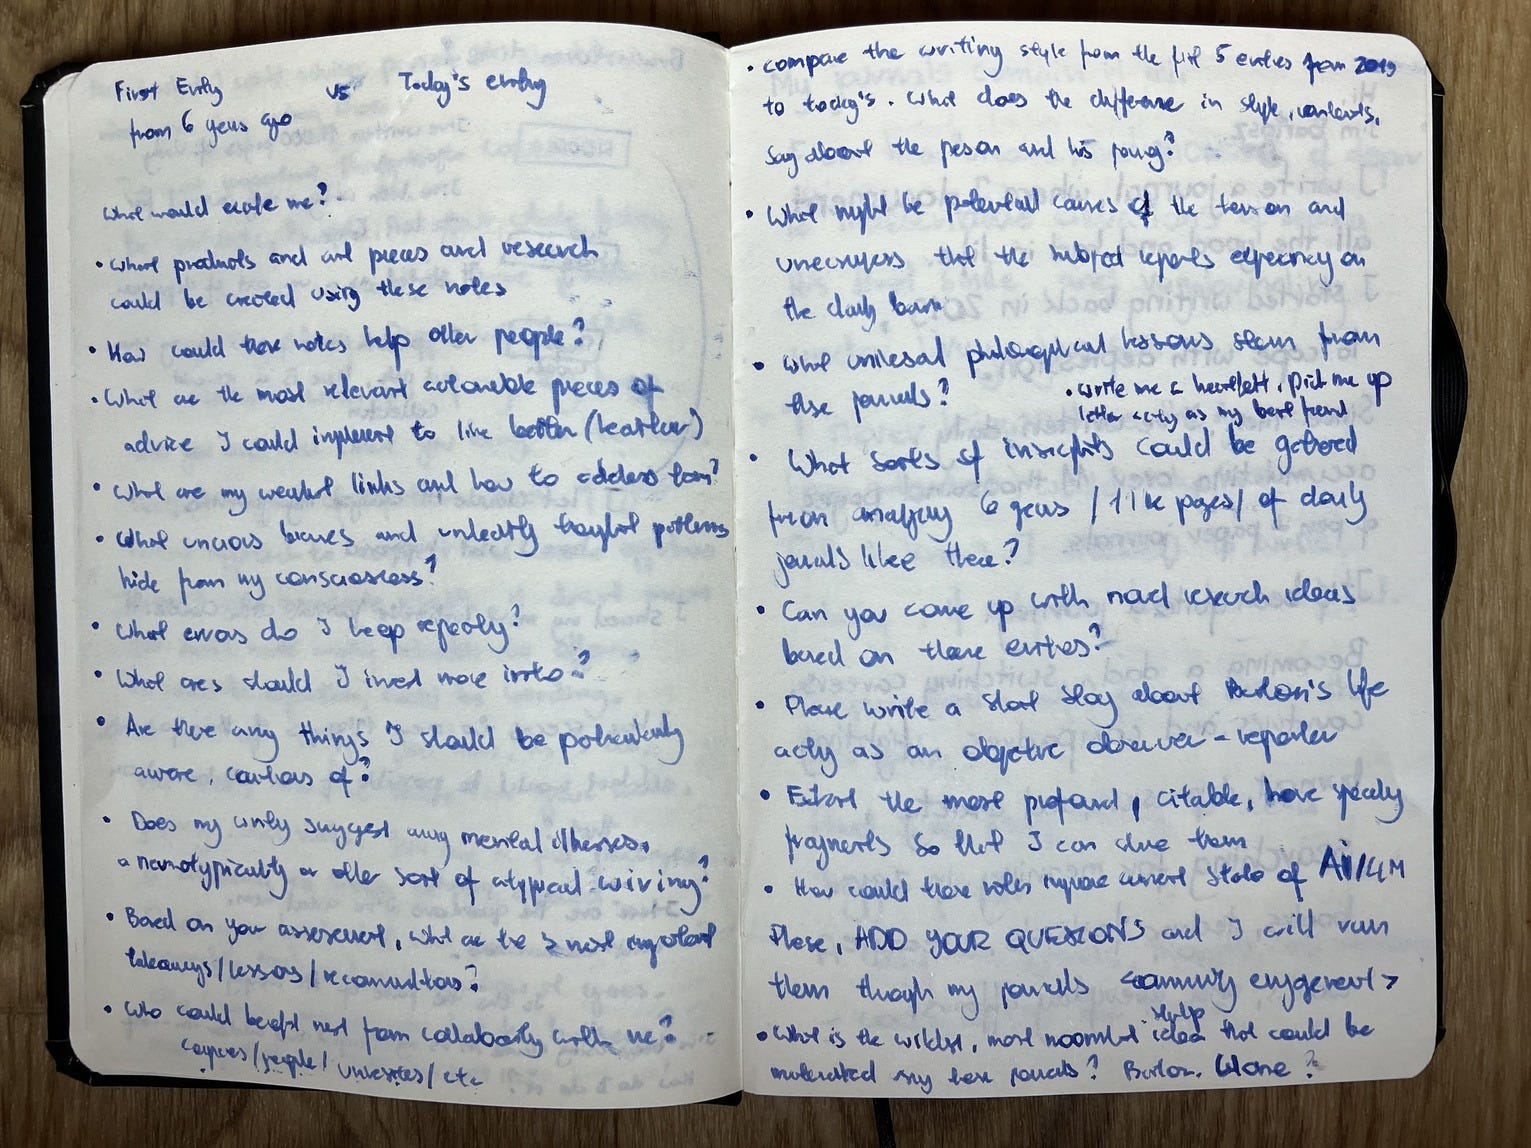 First Entry vs Today's entry
from 6 years ago
What would excite me?
• What products and art pieces and research
could be created using these notes
• How could these notes help other people?
• What are the most relevant actionable pieces of
advice I could implement to live better (healthier)
• What are my weakest links and how to address them?
• What biases and thought patterns
hide from my consciousness?
• What errors do I keep repeating?
• What areas should I invest more into?
• Are there any things I should be particularly
aware, cautious of?
• Does my writing suggest any mental illnesses,
a or other sort of atypical wiring?
• Based on your assessment, what are the most important
takeaways/lessons/recommendations?
• Who could benefit most from collaborating with me?
companies/people/universities/etc
• compare the writing style from the first 5 entries from 2019
to today's. What does the difference in style, contents,
say about the person and his
• What might be potential causes of the tension and
that the subject reports experiencing on
the daily basis
• What universal philosophical lessons stem from
these journals?
• write me a heartfelt, pick me up
letter acting as my best friend
• What sorts of insights could be gathered
from analyzing 6 years /11k pages/ of daily
journals like these?
• Can you come up with novel research ideas
based on these entries?
• Please write a short story about life
acting as an objective observer - reporter
• Extract the most profound, citable,
fragments so that I can share them
• How could these notes current state of Ai/LLM
Please, ADD YOUR QUESTIONS and I will run
them through my journals <community engagement>
• What is the wildest, most startup idea that could be
my journals? Clone?